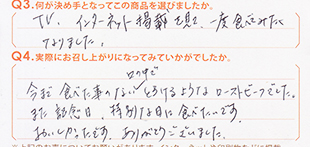 Q3.何が決め手となってこの商品を選びましたか。
TV、インターネット掲載を見て、一度食べてみたく
なりました。
Q4.実際にお召し上がりになってみていかがでしたか。
口の中で
今まで食べた事のないとろけるようなローストビーフでした。
また記念日、特別な日に食べたいです。
おいしかったです。ありがとうございました。